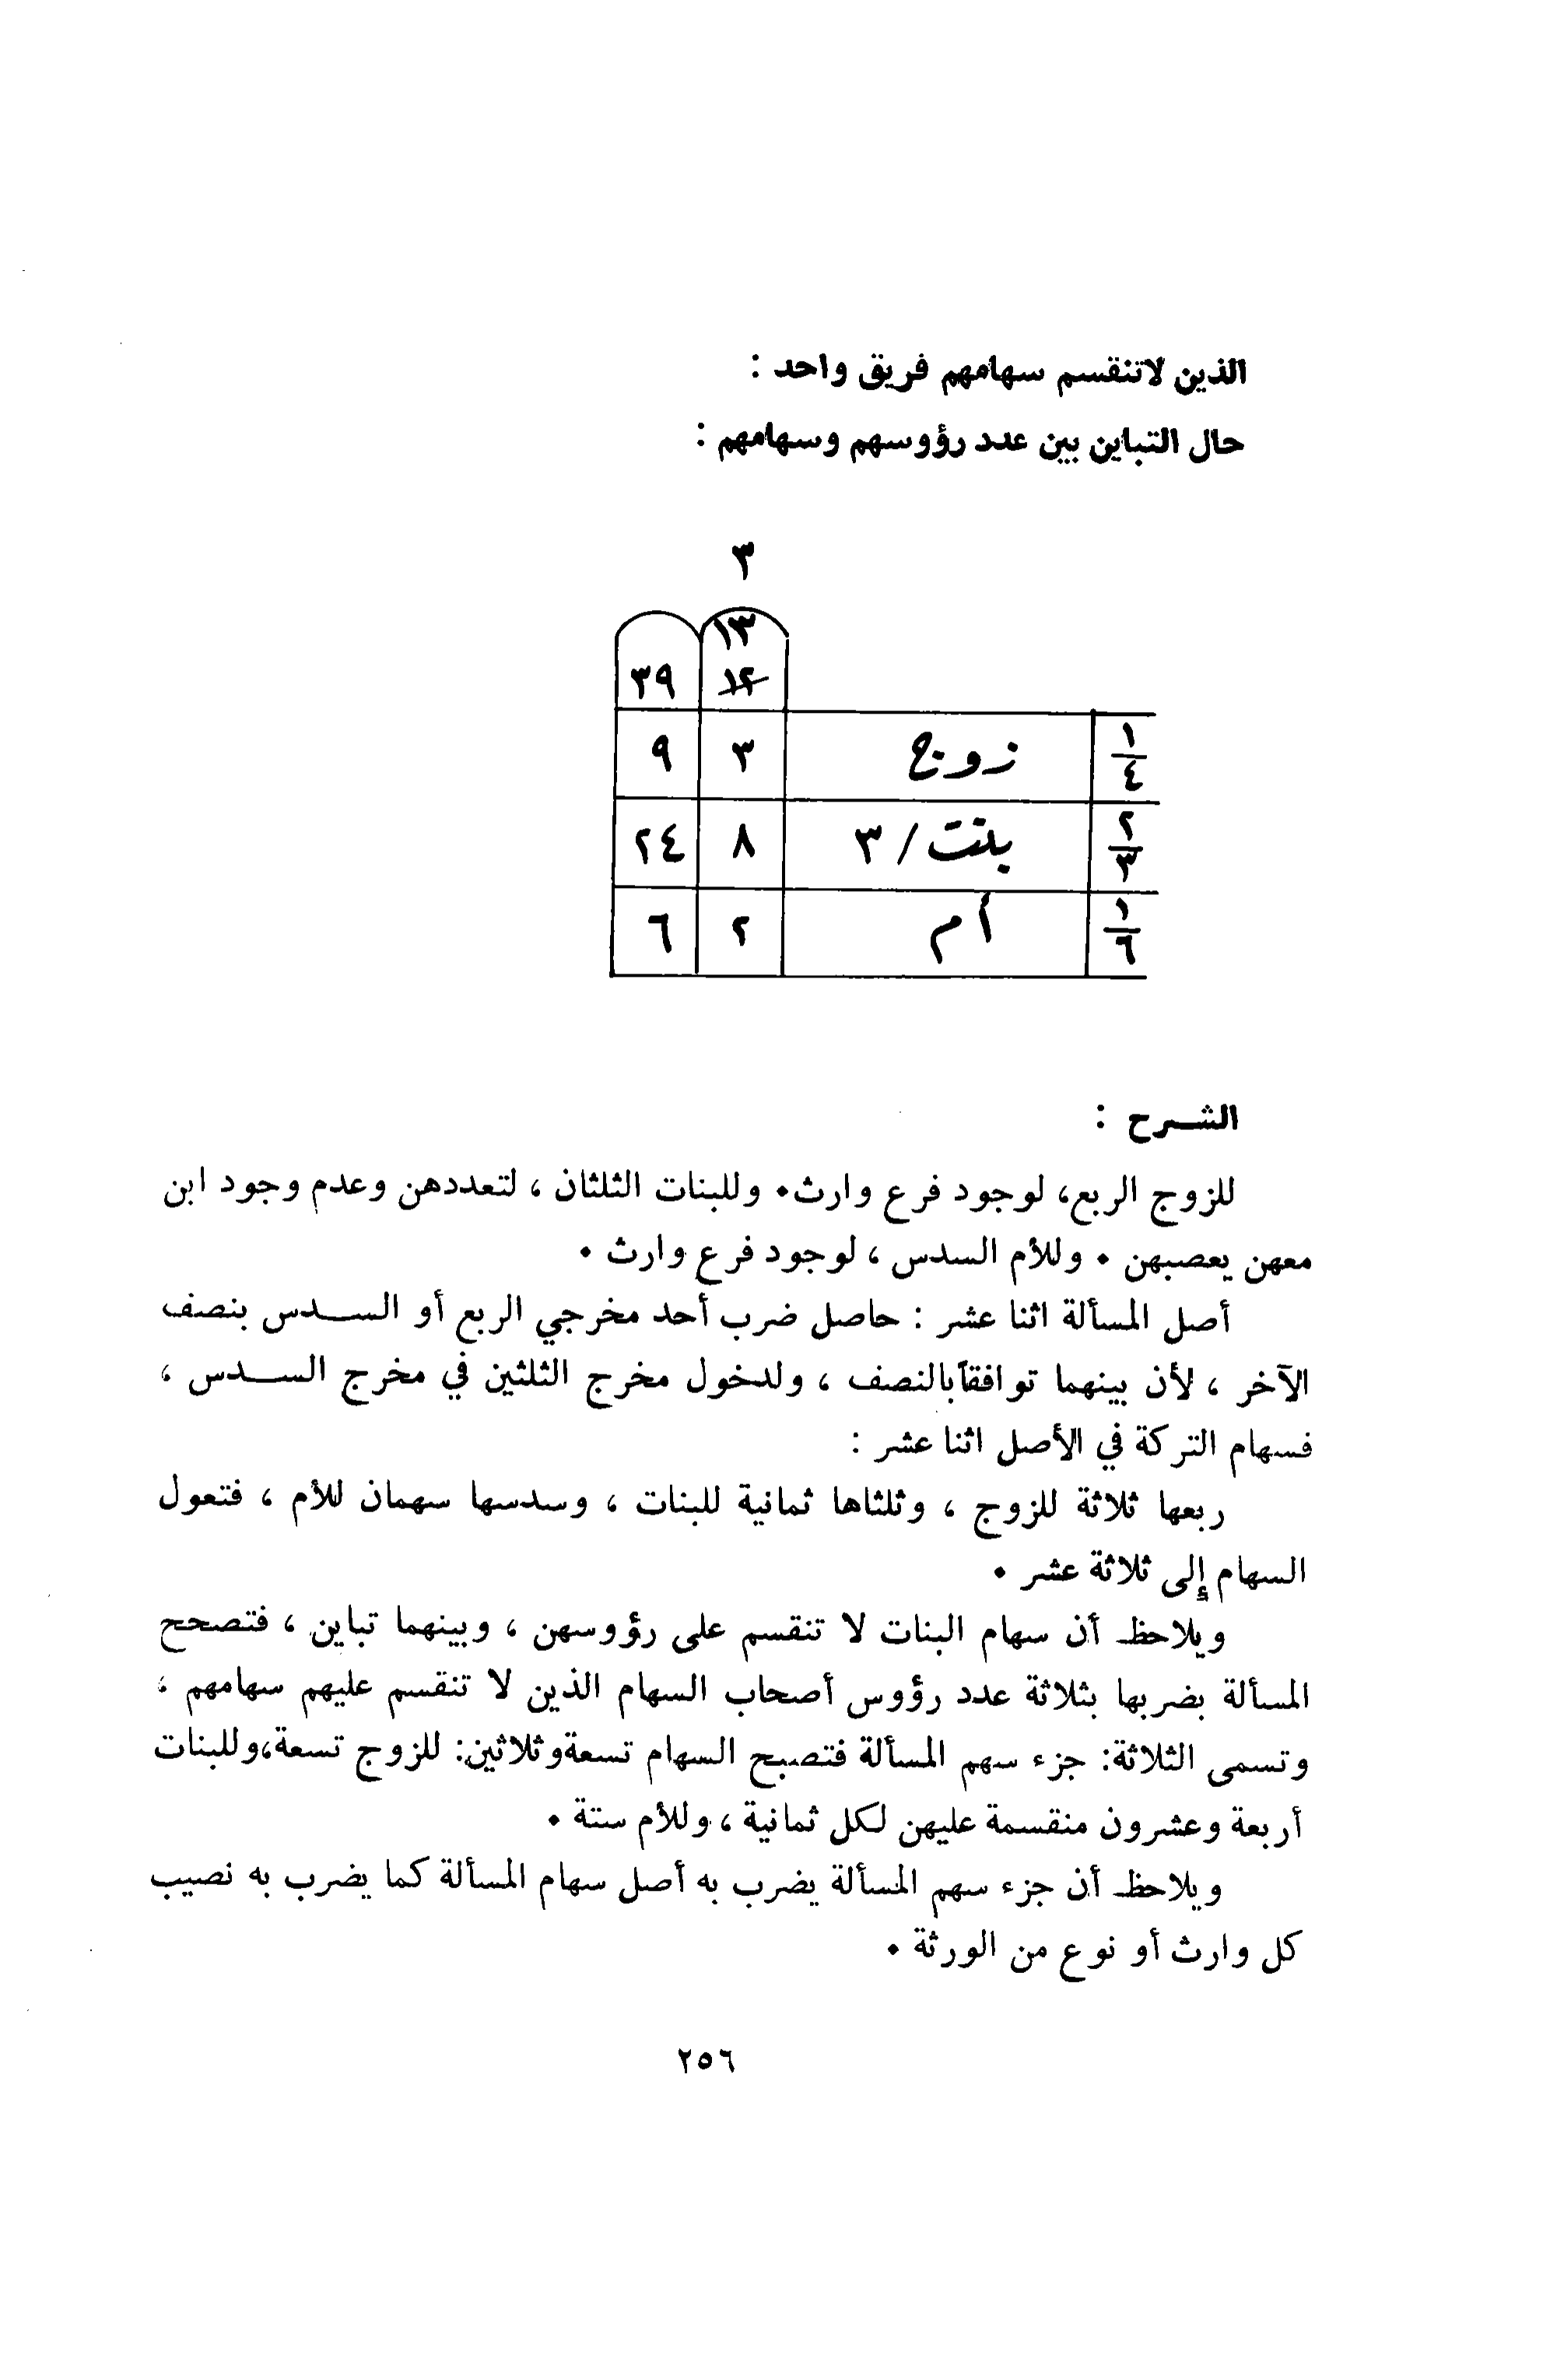 الذين لاتنقسم سهامهم فريق واحد :
حال التباين بين عدد رؤوسهم وسهامهم :
٣
١٣
٣٩ ١٢
١/٤ زوج ٣ ٩
٢/٣ بنت / ٣ ٨ ٢٤
١/٦ أم ٢ ٦
الشرح :
للزوج الربع، لوجود فرع وارث٠ وللبنات الثلثان ، لتعددهن وعدم وجود ابن
معهن يعصبهن ٠ وللأم السدس ، لوجود فرع وارث ٠
أصل المسألة اثنا عشر : حاصل ضرب أحد مخرجي الربع أو السدس بنصف
الآخر ، لأن بينهما توافقاًبالنصف ، ولدخول مخرج الثلثين في مخرج السدس ،
فسهام التركة في الأصل اثنا عشر :
ربعها ثلاثة للزوج ، وثلثاها ثمانية للبنات ، وسدسها سهمان للأم ، فتعول
السهام إلى ثلاثة عشر ٠
ويلاحظ أن سهام البنات لا تنقسم على رؤوسهن ، وبينهما تباين ، فتصحح
المسألة بضربها بثلاثة عدد رؤوس أصحاب السهام الذين لا تنقسم عليهم سهامهم ،
وتسمى الثلاثة: جزء سهم المسألة فتصبح السهام تسعةوثلاثين: للزوج تسعة،وللبنات
أربعة وعشرون منقسمة عليهن لكل ثمانية ، وللأم ستة ٠
ويلاحظ أن جزء سهم المسألة يضرب به أصل سهام المسألة كما يضرب به نصيب
كل وارث أو نوع من الورثة ٠
٢٥٦